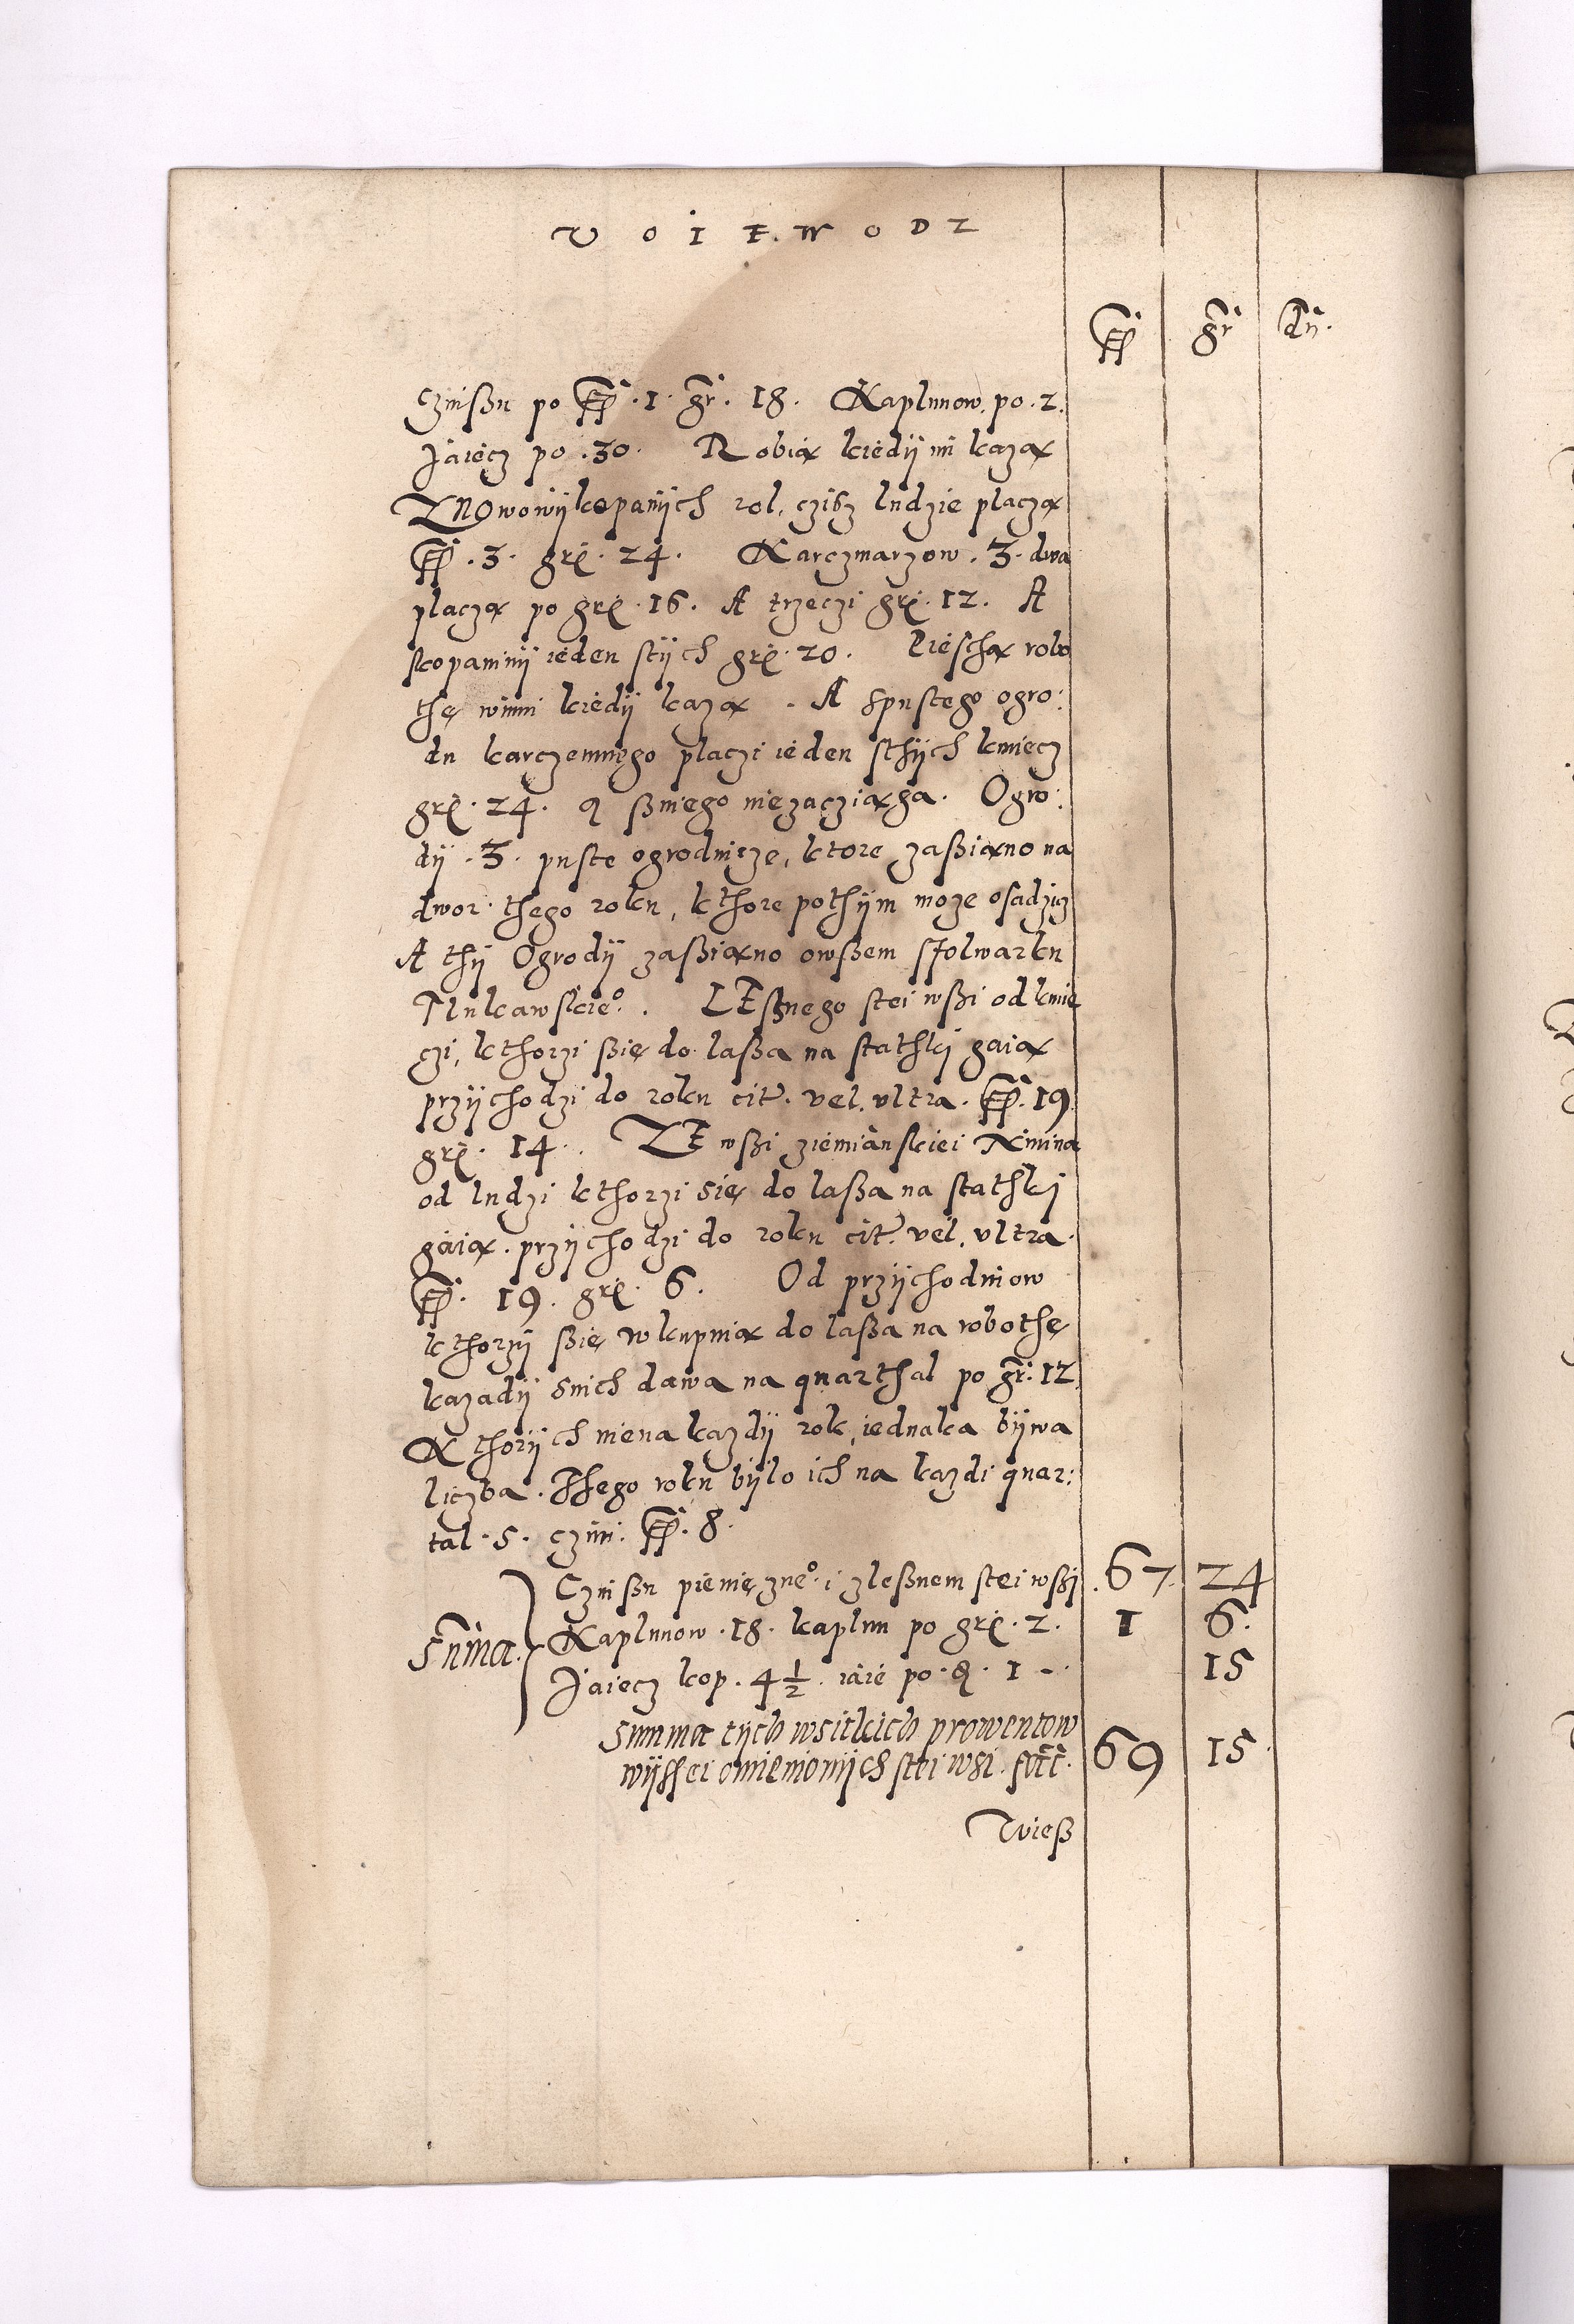 VOIEWODZ
fl. gr. dn.
Czinßu po fl. 1. gr. 18. Kaplunow. po. 2.
Jaiecz po .30. Robią kiedÿ im każą
ZNOwowÿkopanÿch rol, cziż ludzie płaczą
fl. 3. grż. 24. Karczmarzow. 3. dwa
placzą po grż. 16. A trzeczi grż. 12. A
skopaninÿ ieden stÿch grż. 20. Ciescżą robo
thę winni kiedÿ każą. A spustego ogro:
du karczemnego placzi ieden sthÿch kmiecz
grż. 24. A ßniego niezacziąga. Ogro:
dÿ. 3. puste ogrodnicze, ktore zaßiano na
dwor. thego roku, kthore pothÿm może osadzicz
A thÿ Ogrodÿ zaßiano owßem sfolwarku
Tlukawskieº. LEßnego stei wßi od kmie
czi, kthorzi ßię do laßa na stathki gaią
przÿchodzi do roku cit. vel. vltra. fl. 19.
grż. 14. ZE wßi ziemiańskiei Xinina
od ludzi kthorzi się do laßa na stathki
gaią. przÿchodzi do roku cit. vel. vltra.
fl. 19. grż. 6. Od przÿchodniow
kthorzÿ ßię wkupnią do laßa na robothę
kazadÿ snich dawa na quarthal po gr. 12.
Kthorÿch nie na każdÿ rok, iednaka bÿwa
liczba. Thego roku bÿlo ich na każdi quar:
tal. 5. czini. fl. 8.
Suma. Czinßu pienięzneº. i zleßnem stei wßi. 67. 24
Kaplunow. 18. kaplun po grż. 2. 1 6.
Jaiecz kop. 4 1/2. iaie po. d. 1 -. 15
Summa tÿch wsitkich prowentow
wÿssei omieniomÿch stei wsi. facit. 69 15.
Wieß